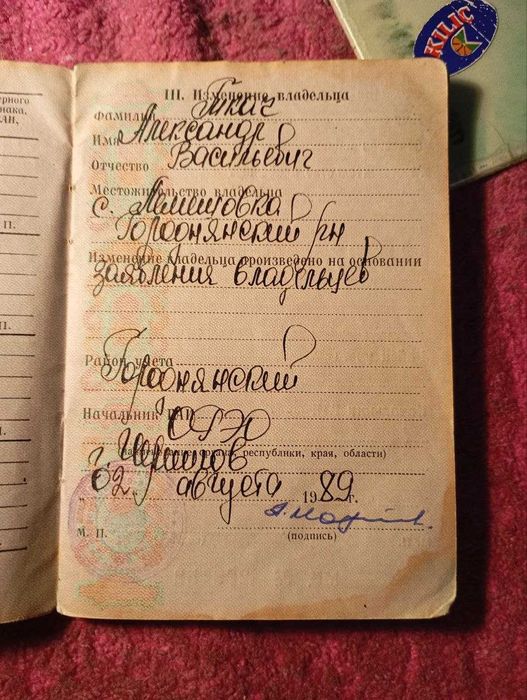 III. Изменение владельца
Фамилия Ткач
Имя Александр
Отчество Васильевич
Местожительство владельца
с.
Городнянский р/н
Изменение владельца произведено на основании
заявления владельцев
Район учета
Городнянский
Начальник ГАИ ОГЭО
(наименование органа, республики, края, области)
г. Чернигов
02 августа 1989 г.
М. П.
(подпись)
KILIÇ